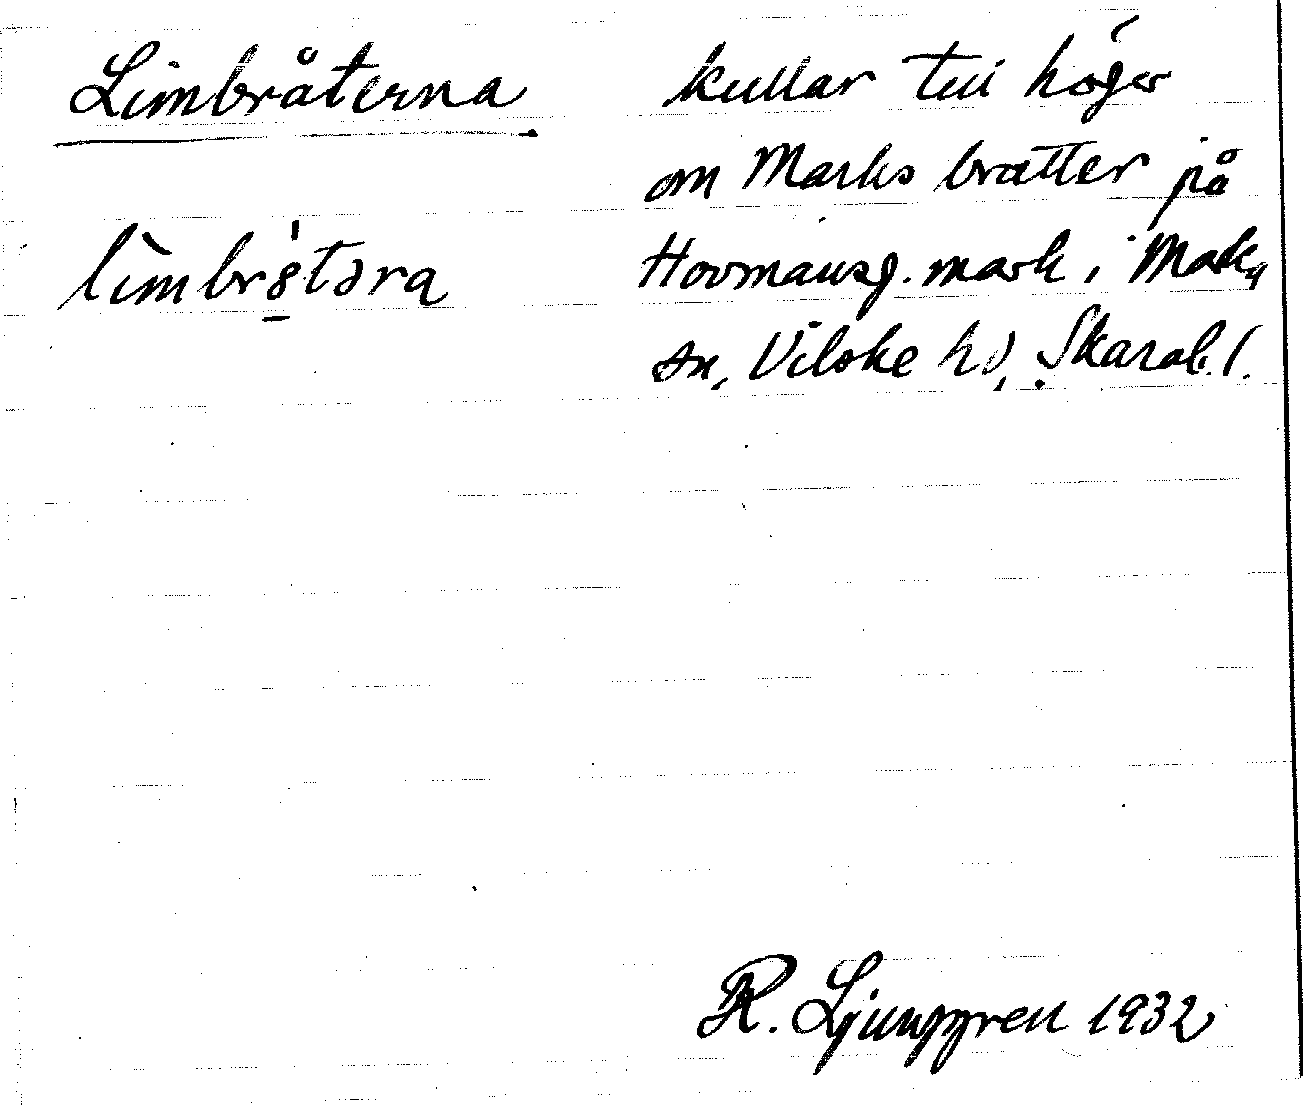 Limbråterna
lìmbr8́təra
kullar till höger
om Marks bratter på
Hovmansg. mark i Marka
sn, Vilske hd, Skarab. l.
R. Ljunggren 1932